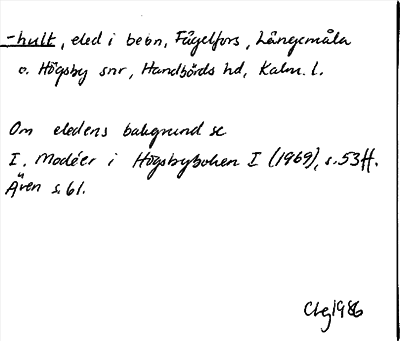 -hult, eled i bebn, Fågelfors, Långemåla
o. Högsby snr, Handbörds hd, Kalm. l.
Om eledens bakgrund se
I. Modéer i Högsbyboken I (1969), s. 53 ff.
Även s. 61.
CLg 1986